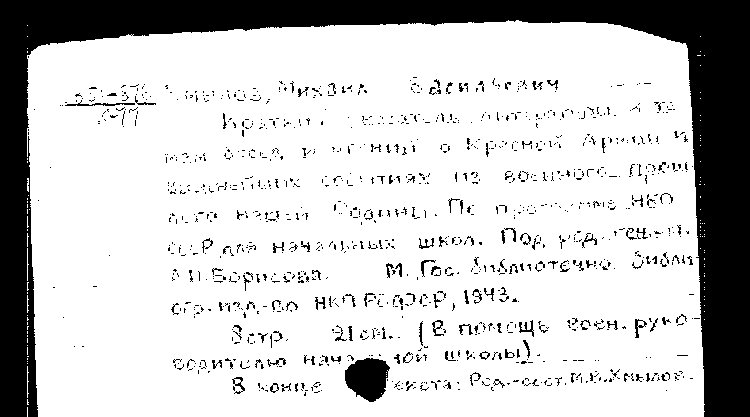 Хмылов, Михаил Васильевич
Краткий указатель литературы к те-
мам бесед и чтений о Красной Армии и
важнейших событиях из военного прош-
лого нашей Родины. По программе НКП
СССР для начальных школ. Под ред. ген.-м.
Борисова. М., Гос. библиотечно-библи-
огр. изд-во НКП РСФСР, 1943.
8 стр. 21 см. (В помощь воен. руко-
водителю начальной школы).
В конце текста: Ред.-сост. М. В. Хмылов.